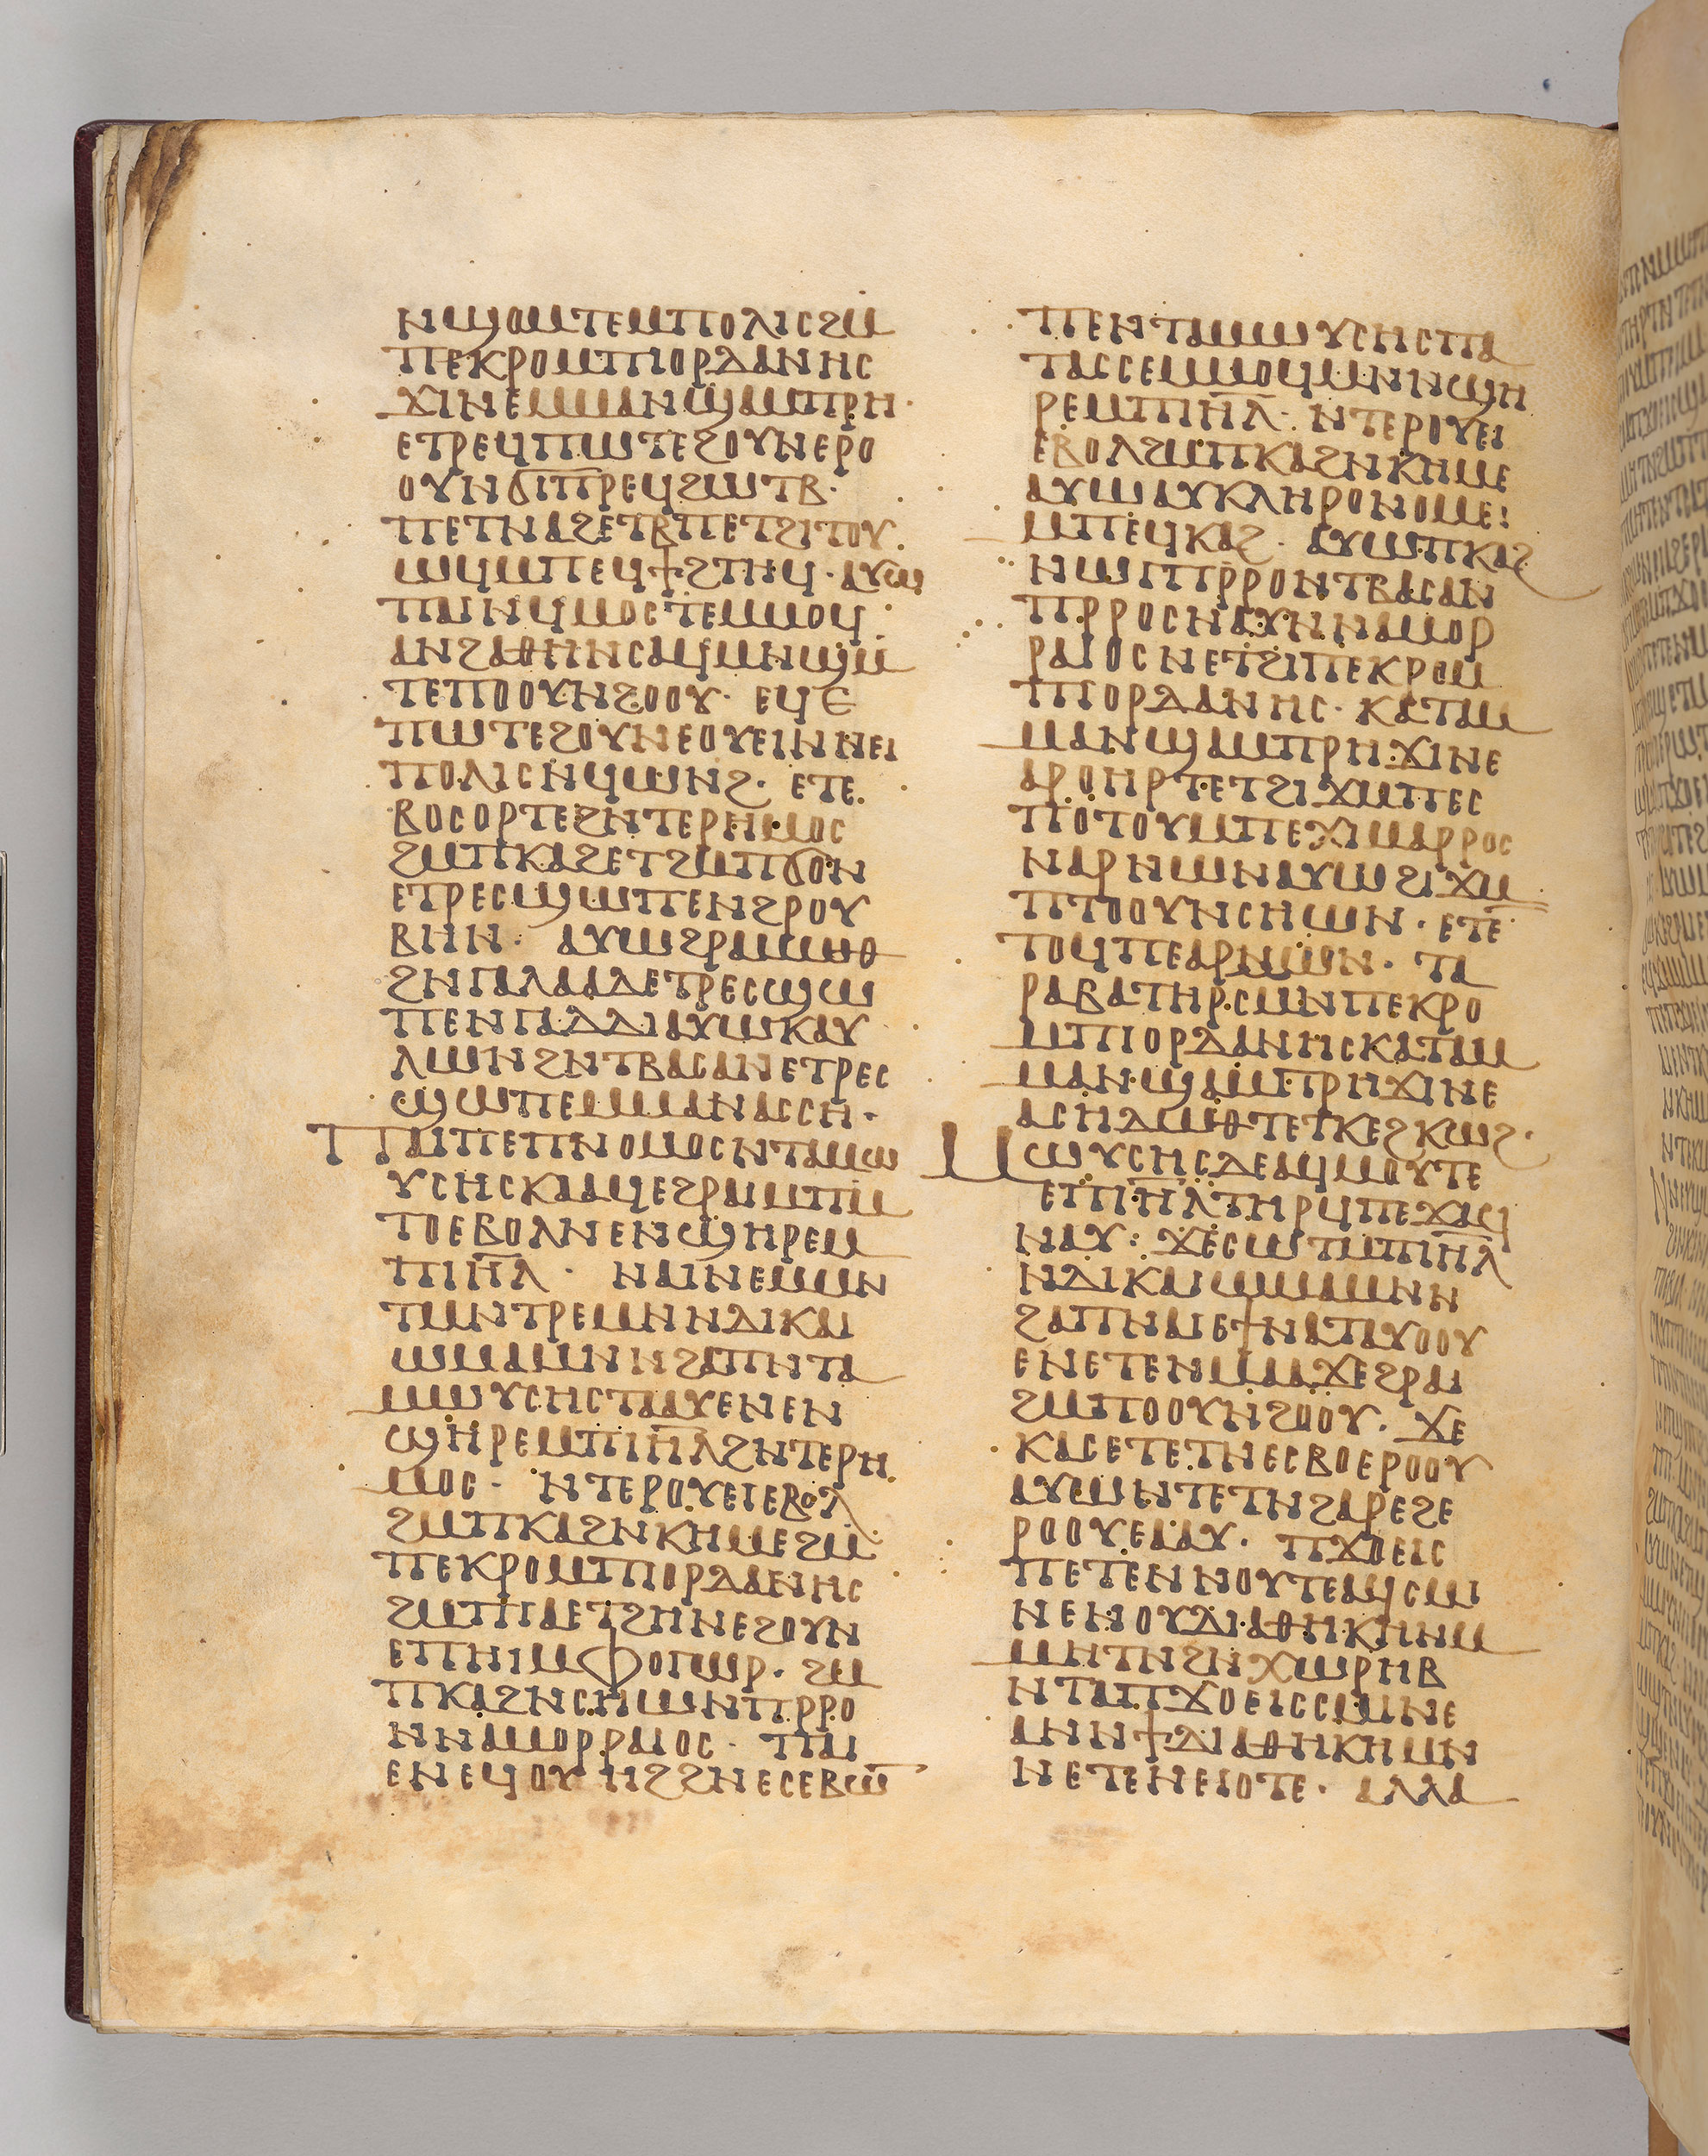 ⲛϣⲟⲙⲧⲉⲙⲡⲟⲗⲓⲥϩⲙ
ⲡⲉⲕⲣⲟⲙⲡⲓⲟⲣⲇⲁⲛⲏⲥ
ϫⲓⲛⲉⲙⲙⲁⲛϣⲁⲙⲡⲣⲏ·
ⲉⲧⲣⲉϥⲡⲱⲧⲉϩⲟⲩⲛⲉⲣⲟ
ⲟⲩⲛϭⲓⲡⲣⲉϥϩⲱⲧⲃ·
ⲡⲉⲧⲛⲁϩⲉⲧⲃⲡⲉⲧϩⲓⲧⲟⲩ
ⲱϥⲙⲡⲉϥϯϩⲧⲏϥ·ⲁⲩⲱ
ⲡⲁⲓⲛϥⲙⲟⲥⲧⲉⲙⲙⲟϥ
ⲁⲛϩⲁⲑⲏⲛⲥⲁϥⲙⲛϣⲙ
ⲧⲉⲡⲟⲟⲩⲛϩⲟⲟⲩ· ⲉϥⲉ
ⲡⲱⲧⲉϩⲟⲩⲛⲉⲟⲩⲉⲓⲛⲛⲉⲓ
ⲡⲟⲗⲓⲥⲛϥⲱⲛϩ· ⲉⲧⲉ
ⲃⲟⲥⲟⲣⲧⲉϩⲛⲧⲉⲣⲏⲙⲟⲥ
ϩⲙⲡⲕⲁϩⲉⲧϩⲙⲡϭⲟⲛ
ⲉⲧⲣⲉⲥϣⲱⲡⲉⲛϩⲣⲟⲩ
ⲃⲏⲛ· ⲁⲩⲱϩⲣⲁⲙⲙⲱⲑ
ϩⲛⲅⲁⲗⲁⲁⲇⲉⲧⲣⲉⲥϣⲱ
ⲡⲉⲛⲅⲁⲇⲇⲓⲁⲩⲱⲕⲁⲩ
ⲗⲱⲛϩⲛⲧⲃⲁⲥⲁⲛⲉⲧⲣⲉⲥ
ϣⲱⲡⲉⲙⲙⲁⲛⲁⲥⲥⲏ·
ⲡⲁⲓⲡⲉⲡⲛⲟⲙⲟⲥⲛⲧⲁⲙⲱ
ⲩⲥⲏⲥⲕⲁⲁϥⲉϩⲣⲁⲓⲙⲡⲙ
ⲧⲟⲉⲃⲟⲗⲛⲉⲛϣⲏⲣⲉⲙ
ⲡⲓⲏⲗ· ⲛⲁⲓⲛⲉⲙⲙⲛ
ⲧⲙⲛⲧⲣⲉⲙⲛⲛⲇⲓⲕⲁⲓ
ⲱⲙⲁⲙⲛⲛϩⲁⲡⲛⲧⲁ
ⲙⲱⲩⲥⲏⲥⲧⲁⲁⲩⲉⲛⲉⲛ
ϣⲏⲣⲉⲙⲡⲓⲏⲗϩⲛⲧⲉⲣⲏ
ⲙⲟⲥ· ⲛⲧⲉⲣⲟⲩⲉⲓⲉⲃⲟⲗ
ϩⲙⲡⲕⲁϩⲛⲕⲏⲙⲉϩⲙ
ⲡⲉⲕⲣⲟⲙⲡⲓⲟⲣⲇⲁⲛⲏⲥ
ϩⲙⲡⲓⲁⲉⲧϩⲏⲛⲉϩⲟⲩⲛ
ⲉⲡⲏⲓⲙⲫⲟⲅⲱⲣ· ϩⲙ
ⲡⲕⲁϩⲛⲥⲏⲱⲛⲡⲣⲣⲟ
ⲛⲛⲁⲙⲟⲣⲣⲁⲓⲟⲥ· ⲡⲁⲓ
ⲉⲛⲉϥⲟⲩⲏϩϩⲛⲉⲥⲉⲃⲱ
ⲡⲉⲛⲧⲁⲙⲱⲩⲥⲏⲥⲡⲁ
ⲧⲁⲥⲥⲉⲙⲙⲟϥⲙⲛⲛϣⲏ
ⲣⲉⲙⲡⲓⲏⲗ· ⲛⲧⲉⲣⲟⲩⲉⲓ
ⲉⲃⲟⲗϩⲙⲡⲕⲁϩⲛⲕⲏⲙⲉ
ⲁⲩⲱⲁⲩⲕⲗⲏⲣⲟⲛⲟⲙⲉⲓ
ⲙⲡⲉϥⲕⲁϩ· ⲁⲩⲱⲡⲕⲁϩ
ⲛⲱⲅⲡⲣⲣⲟⲛⲧⲃⲁⲥⲁⲛ
ⲡⲣⲣⲟⲥⲛⲁⲩⲛⲛⲁⲙⲟⲣ
ⲣⲁⲓⲟⲥⲛⲉⲧϩⲓⲡⲉⲕⲣⲟⲙ
ⲡⲓⲟⲣⲇⲁⲛⲏⲥ· ⲕⲁⲧⲁⲙ
ⲙⲁⲛϣⲁⲙⲡⲣⲏϫⲓⲛⲉ
ⲁⲣⲟⲏⲣⲧⲉⲧϩⲓϫⲙⲡⲉⲥ
ⲡⲟⲧⲟⲩⲙⲡⲉⲭⲓⲙⲁⲣⲣⲟⲥ
ⲛⲁⲣⲛⲱⲛⲁⲩⲱϩⲓϫⲙ
ⲡⲧⲟⲟⲩⲛⲥⲏⲱⲛ· ⲉⲧⲉ
ⲧⲟϥⲡⲉⲁⲣⲙⲱⲛ· ⲧⲁ
ⲣⲁⲃⲁⲧⲏⲣⲥⲙⲛⲡⲉⲕⲣⲟ
ⲙⲡⲓⲟⲣⲇⲁⲛⲏⲥⲕⲁⲧⲁⲙ
ⲙⲁⲛϣⲁⲙⲡⲣⲏϫⲓⲛⲉ
ⲁⲥⲏⲇⲱⲑⲧⲉⲧⲕⲉϩⲕⲱϩ·
ⲙⲱⲩⲥⲏⲥⲇⲉⲁϥⲙⲟⲩⲧⲉ
ⲉⲡⲓⲏⲗⲧⲏⲣϥⲡⲉϫⲁϥ
ⲛⲁⲩ: ϫⲉⲥⲱⲧⲙⲡⲓⲏⲗ
ⲛⲇⲓⲕⲁⲓⲱⲙⲁⲙⲛⲛ
ϩⲁⲡⲛⲁⲓⲉϯⲛⲁⲧⲁⲩⲟⲟⲩ
ⲉⲛⲉⲧⲉⲛⲙⲁⲁϫⲉϩⲣⲁⲓ
ϩⲙⲡⲟⲟⲩⲛϩⲟⲟⲩ· ϫⲉ
ⲕⲁⲥⲉⲧⲉⲧⲛⲉⲥⲃⲟⲉⲣⲟⲟⲩ
ⲁⲩⲱⲛⲧⲉⲧⲛϩⲁⲣⲉϩⲉ
ⲣⲟⲟⲩⲉⲁⲁⲩ· ⲡϫⲟⲉⲓⲥ
ⲡⲉⲧⲉⲛⲛⲟⲩⲧⲉⲁϥⲥⲙⲓ
ⲛⲉⲛⲟⲩⲇⲓⲁⲑⲏⲕⲏⲛⲙ
ⲙⲏⲧⲛϩⲛⲭⲱⲣⲏⲃ
ⲛⲧⲁⲡϫⲟⲉⲓⲥⲥⲙⲓⲛⲉ
ⲁⲛⲛϯⲇⲓⲁⲑⲏⲕⲏⲙⲛ
ⲛⲉⲧⲉⲛⲉⲓⲟⲧⲉ· ⲁⲗⲗⲁ